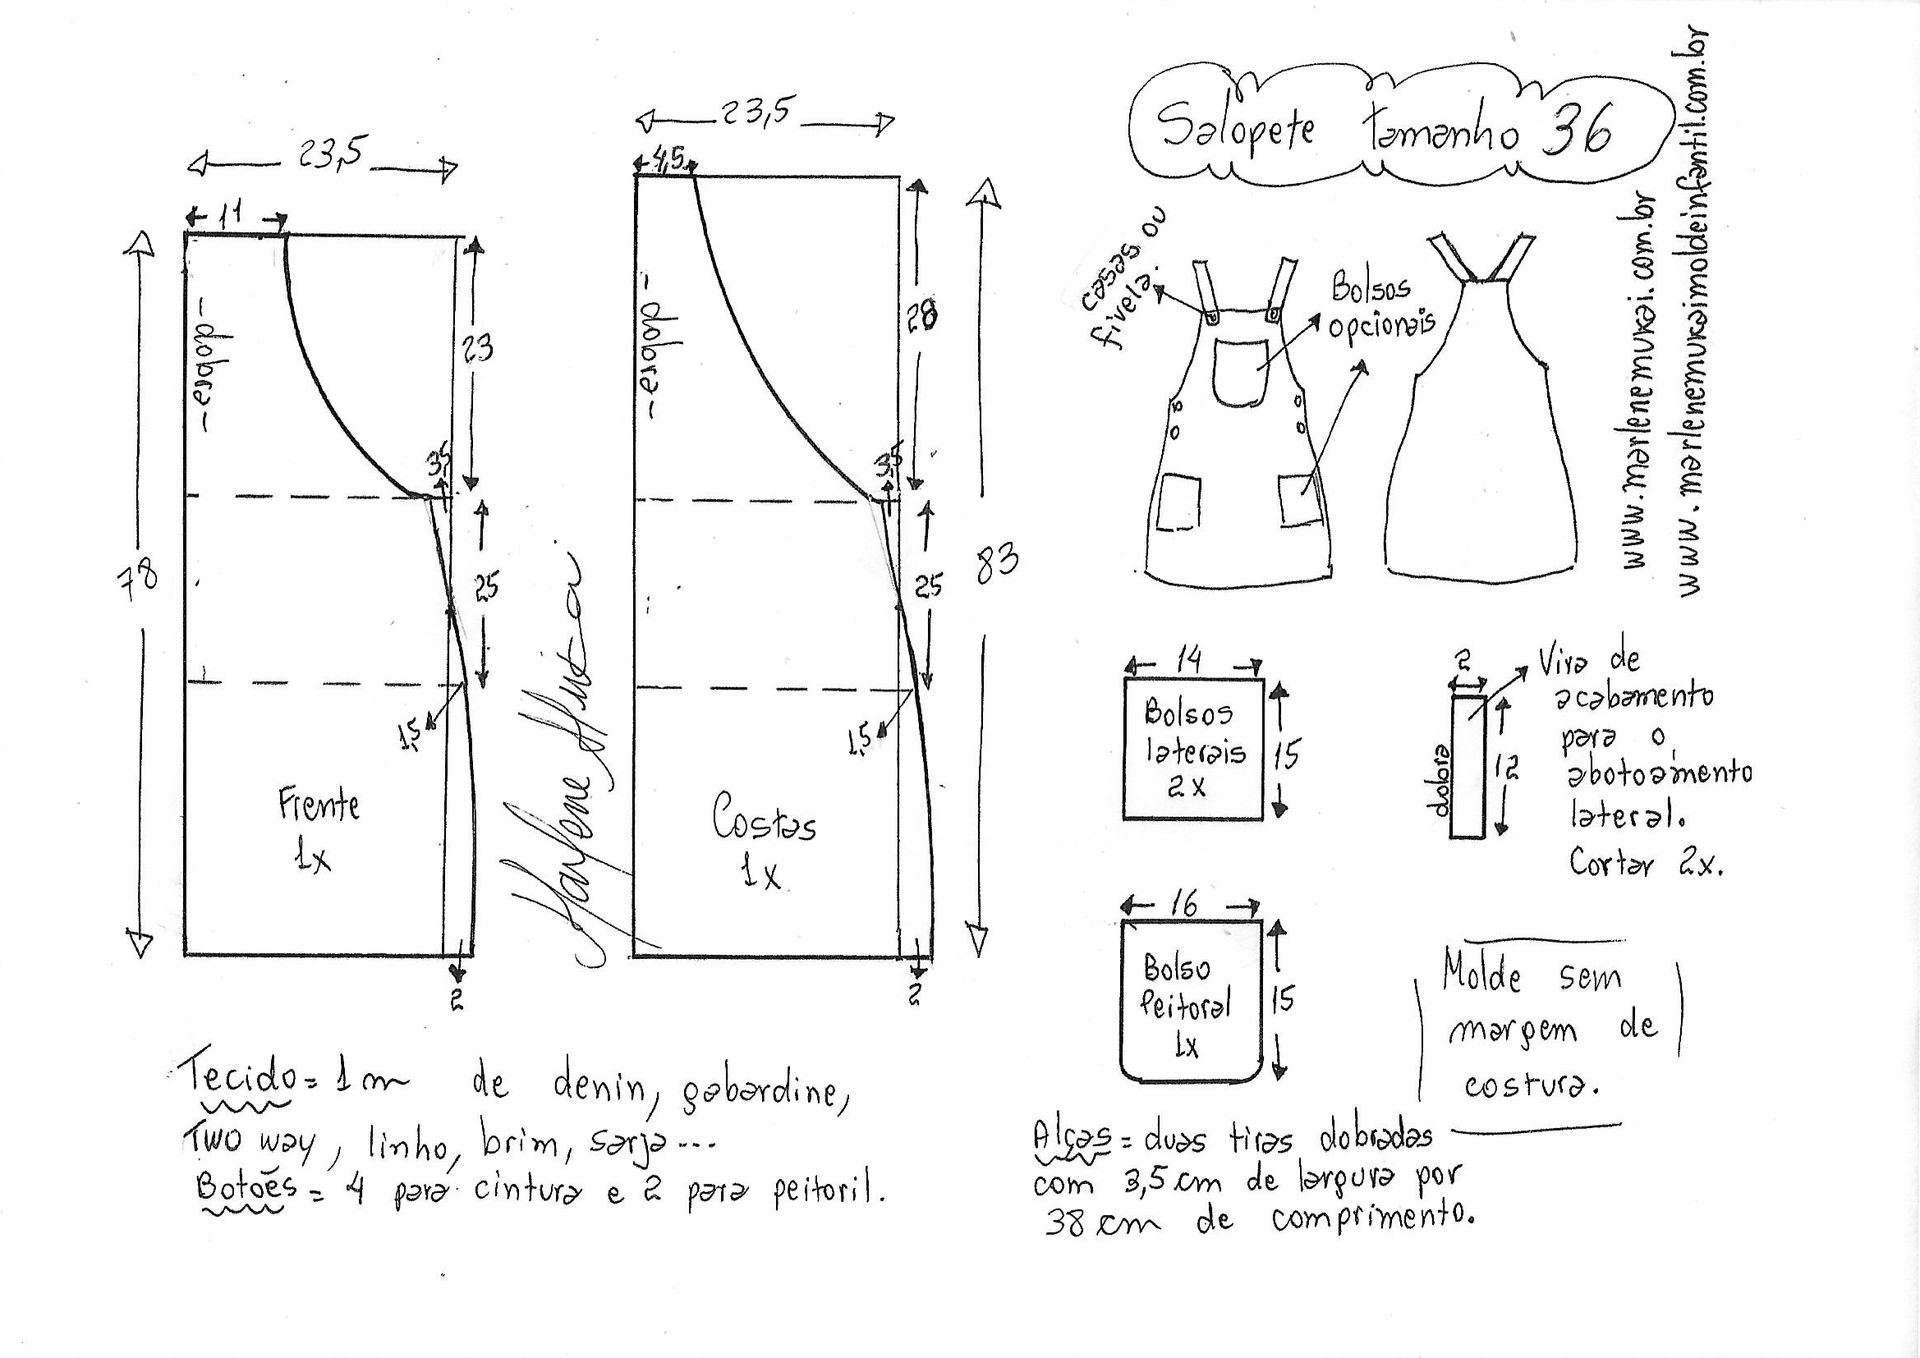 Salopete tamanho 36
www.marlenemukai.com.br
www.marlenemukaimoldeinfantil.com.br
23,5
11
-dobra-
23
3,5
78
25
1,5
Frente
1x
2
23,5
4,5
-dobra-
28
3,5
83
25
1,5
Costas
1x
2
Marlene Mukai
casas ou
fivela.
Bolsos
opcionais
14
Bolsos
laterais
2x
15
2
dobra
12
Vira de
acabamento
para o
abotoamento
lateral.
Cortar 2x.
16
Bolso
Peitoral
1x
15
Molde sem
margem de
costura.
Tecido = 1m de denin, gabardine,
Two way, linho, brim, sarja...
Botões = 4 para cintura e 2 para peitoril.
Alças = duas tiras dobradas
com 3,5 cm de largura por
38 cm de comprimento.